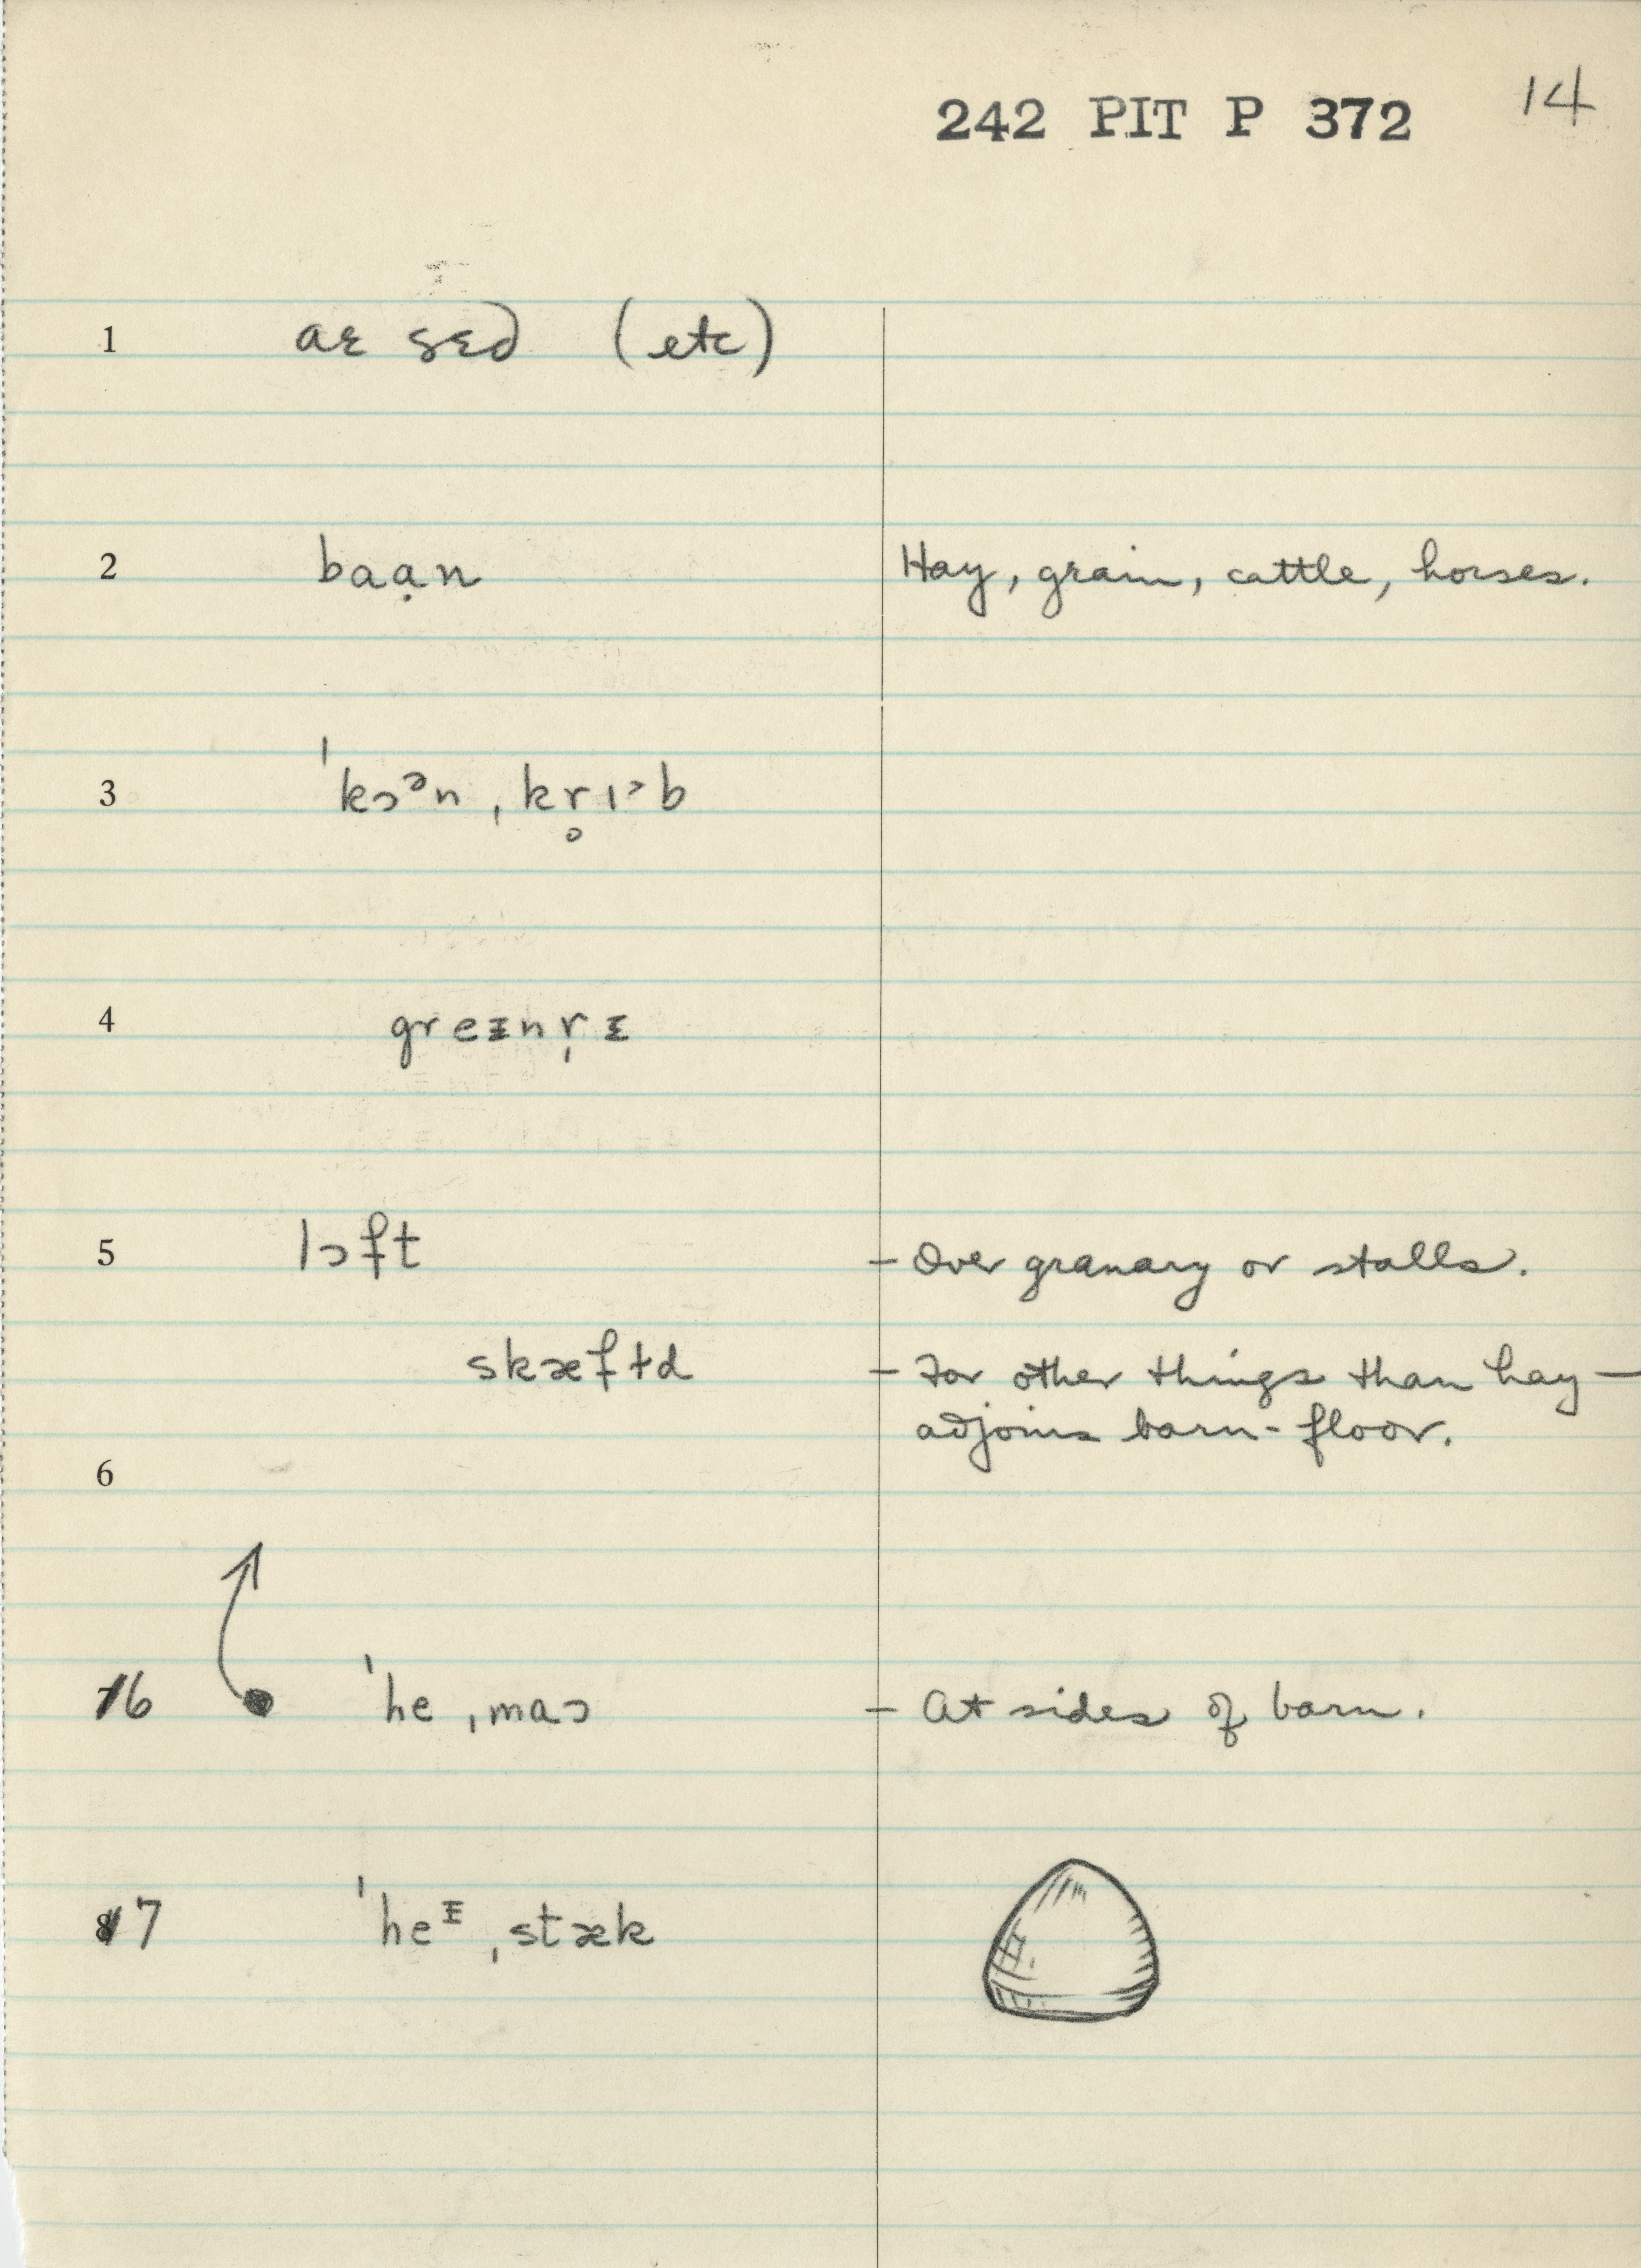 242 PIT P 372 14
1 aɛ sɛd (etc)
2 baạn Hay, grain, cattle, horses.
3 ˈkɔᵊn ˌkr̥ɪ˃b
4 greᵻnr̩ᵻ
5 lɔft – Over granary or stalls.
skæftd – For other things than hay –
adjoins barn-floor.
6
6 ˈhe ˌmaɔ – At sides of barn.
7 ˈheᵻ ˌstæk